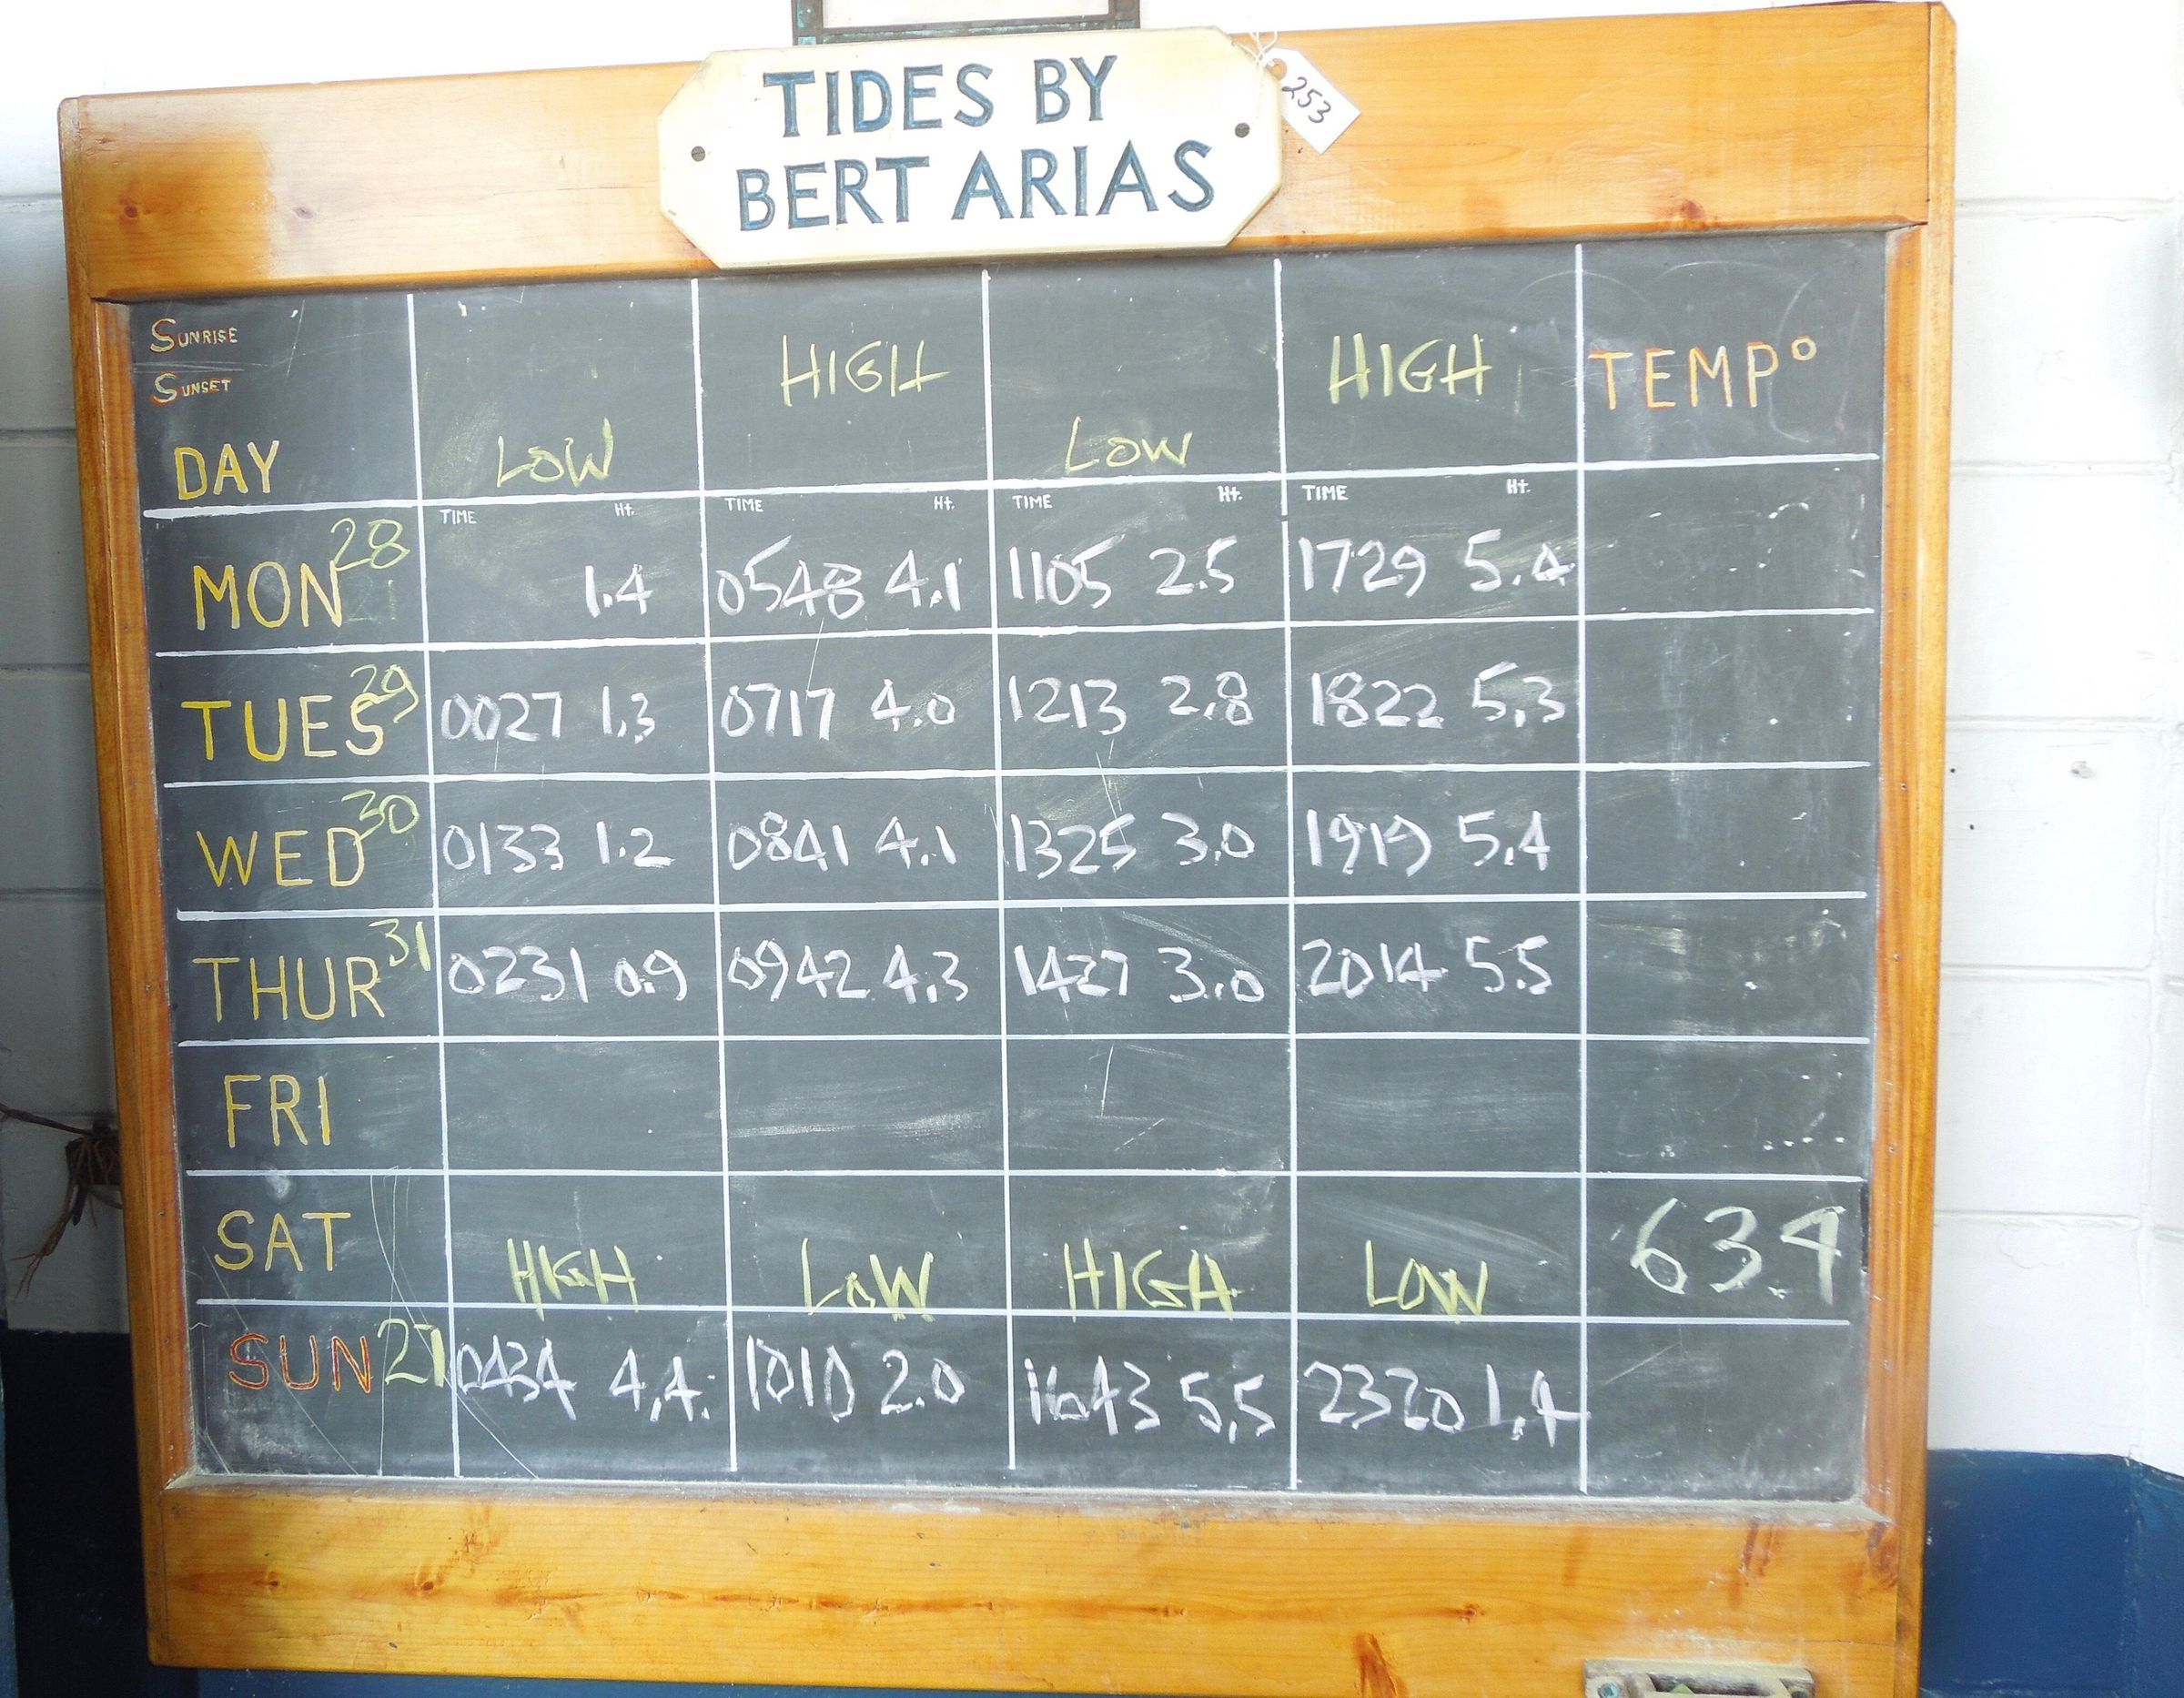 TIDES BY
BERT ARIAS
253
SUNRISE
SUNSET
HIGH HIGH TEMP°
DAY LOW LOW
TIME Ht. TIME Ht. TIME Ht. TIME Ht.
MON 28 1.4 0548 4.1 1105 2.5 1729 5.4
TUES 29 0027 1.3 0717 4.0 1213 2.8 1822 5.3
WED 30 0133 1.2 0841 4.1 1325 3.0 1919 5.4
THUR 31 0231 0.9 0942 4.3 1427 3.0 2014 5.5
FRI
SAT 63.4
HIGH LOW HIGH LOW
SUN 27 0434 4.4 1010 2.0 1643 5.5 2320 1.4